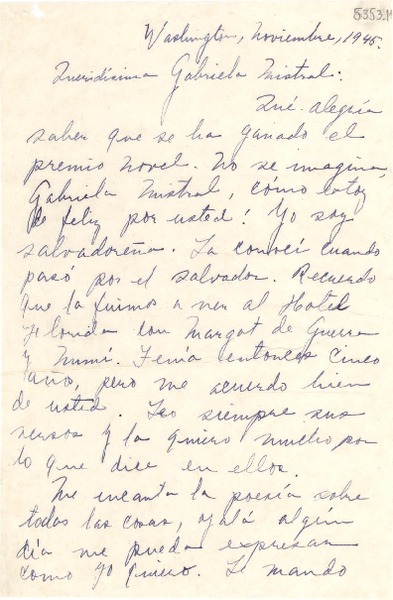 5353.M
Washington, noviembre, 1945.
Queridísima Gabriela Mistral:
Qué alegría
saber que se ha ganado el
premio novel. No se imagina,
Gabriela Mistral, cómo estoy
de feliz por usted! Yo soy
salvadoreña. La conocí cuando
pasó por el Salvador. Recuerdo
que la fuimos a ver al Hotel
Florida con Margot de Guerra
y Mimí. Tenía entonces cinco
año, pero me acuerdo bien
de usted. Leo siempre sus
versos y la quiero mucho por
lo que dice en ellos.
Me encanta la poesía sobre
todas las cosas, ojalá algún
día me pueda expresar
como yo quiero. Le mando